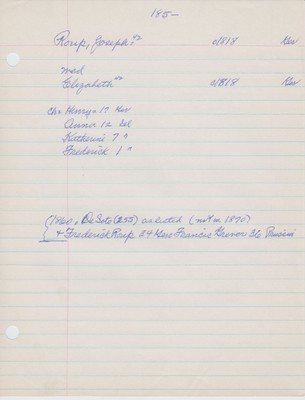 185-
Roup, Joseph 42 c1818 Ger
med
Elizabeth 42 c1818 Ger
Ch: Henry 17 Ger
Anna 12 Ill
Katherine 7 "
Frederick 1 "
(1860, DeSoto (255) as listed (not in 1870)
& Frederick Roup 34 Ger Francis Grevor 36 Prussia